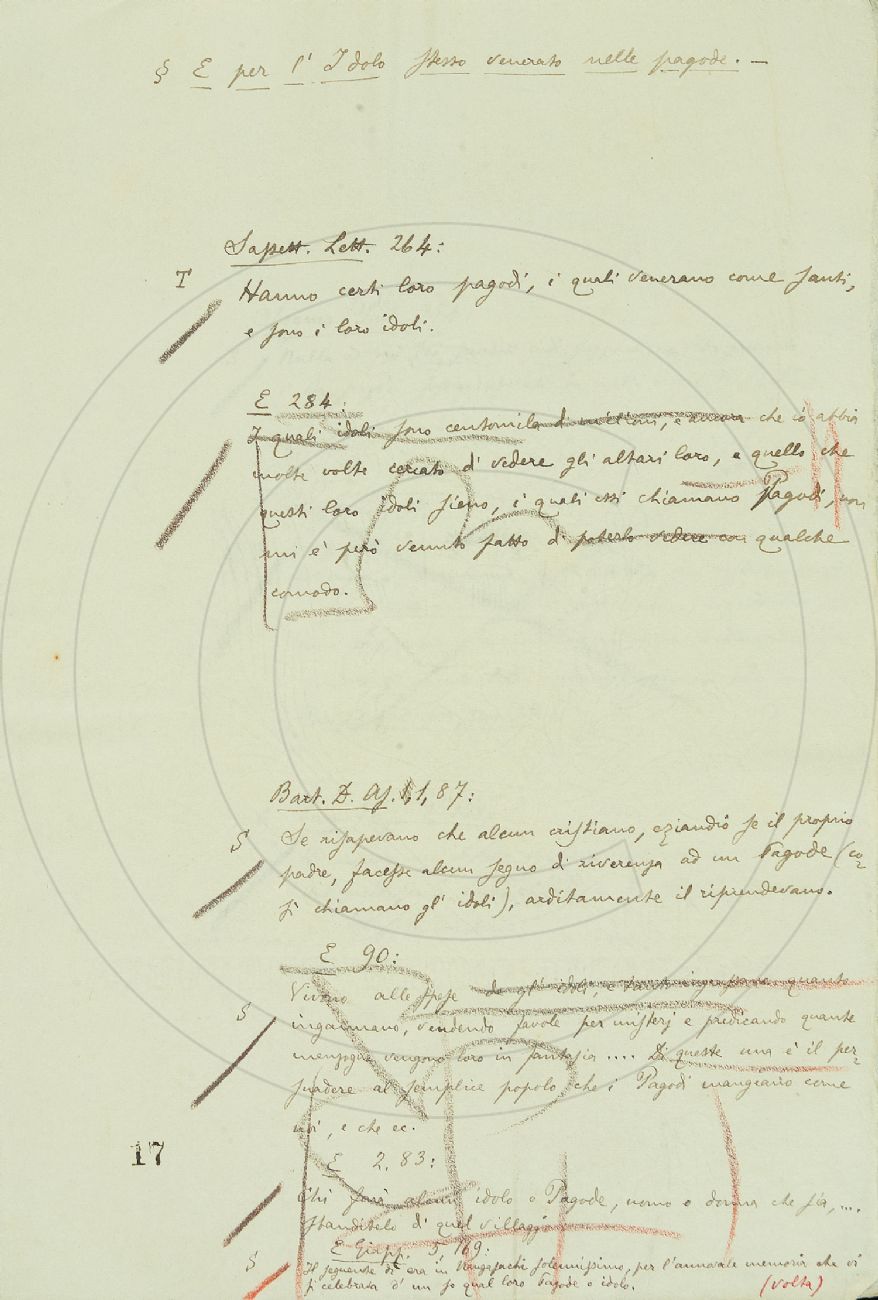 § E per l' Idolo stesso venerato nelle pagode. —
Sassett. Lett. 264:
T
Hanno certi loro pagodi, i quali venerano come santi,
e sono i loro idoli.
E 284:
I quali idoli sono centomila di milioni, e ancora che io abbia
molte volte cercato di vedere gli altari loro, e quello che
questi loro idoli sieno, i quali essi chiamano Pagodi, non
mi è però venuto fatto di poterlo vedere con qualche
comodo.
Bart. D. As. 1, 87:
S
Se risapevano che alcun cristiano, eziandio se il proprio
padre, facesse alcun segno di riverenza ad un Pagode (co-
sì chiamano gl' idoli), arditamente il riprendevano.
E 90:
S
Vivono alle spese de gl' idoli, e tanto ingrassano quanto
ingannano, vendendo favole per misterj e predicando quante
menzogne vengono loro in fantasia .... Di queste una è il per-
suadere al semplice popolo che i Pagodi mangiano come
noi, e che ec.
17
E 2. 83:
Chi farà alcun idolo o Pagode, uomo o donna che sia, ...
sbanditelo di quel villaggio
E Giapp. 5, 169:
S
Il seguente dì era in Nangasachi solennissimo, per l'annovale memoria che vi
si celebrava d' un so qual loro Pagode o idolo.
(volta)